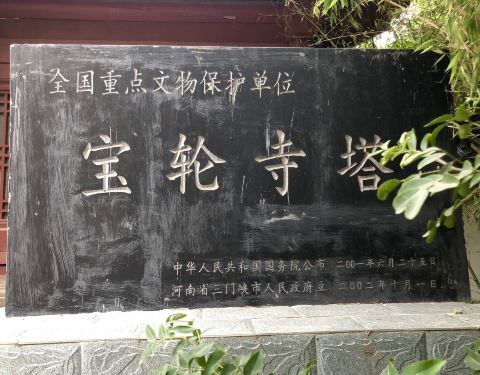 全国重点文物保护单位
宝轮寺塔
中华人民共和国国务院公布 二〇〇一年六月二十五日
河南省三门峡市人民政府立 二〇〇二年十月一日